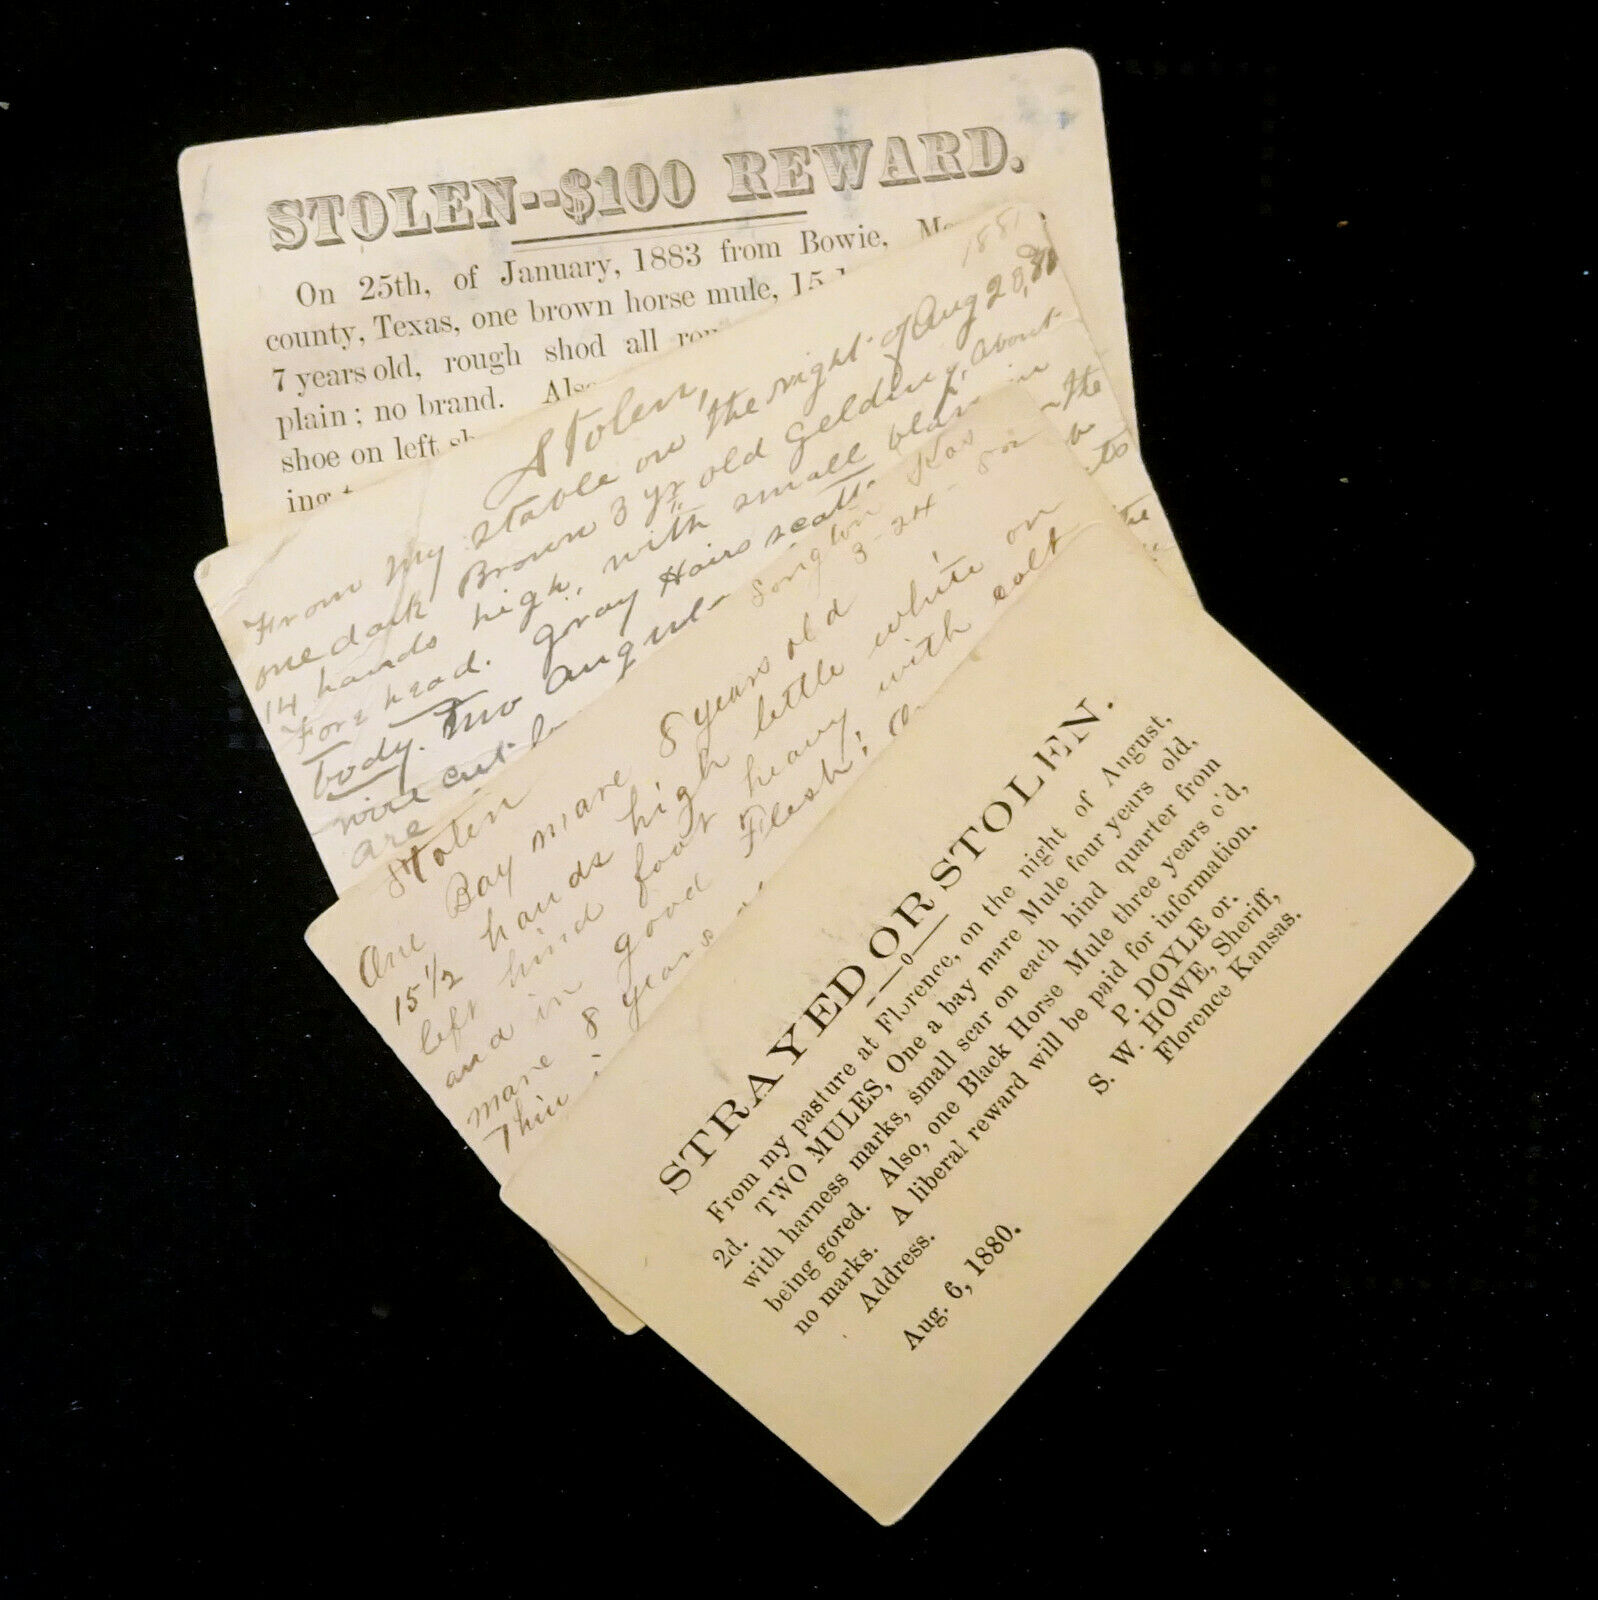 STOLEN--$100 REWARD.
On 25th, of January, 1883 from Bowie,
county, Texas, one brown horse mule, 15
7 years old, rough shod all
plain; no brand.
shoe on left
1881
Stolen,
From my stable on the night of Aug 20,
one dark Brown 3 yr old Gelding, about
14 hands high, with small
Fore head. Gray Hairs
body. Two
wire cut
are
the
Stolen
3-24
One Bay mare 8 years old
15 1/2 hands high little white on
left hind foot heavy with colt
and in good Flesh;
mare 8 years
Thin
STRAYED OR STOLEN.
—o—
From my pasture at Florence, on the night of August,
2d. TWO MULES, One a bay mare Mule four years old,
with harness marks, small scar on each hind quarter from
being gored. Also, one Black Horse Mule three years o'd,
no marks. A liberal reward will be paid for information.
Address. P. DOYLE or.
S. W. HOWE, Sheriff,
Aug. 6, 1880. Florence Kansas.